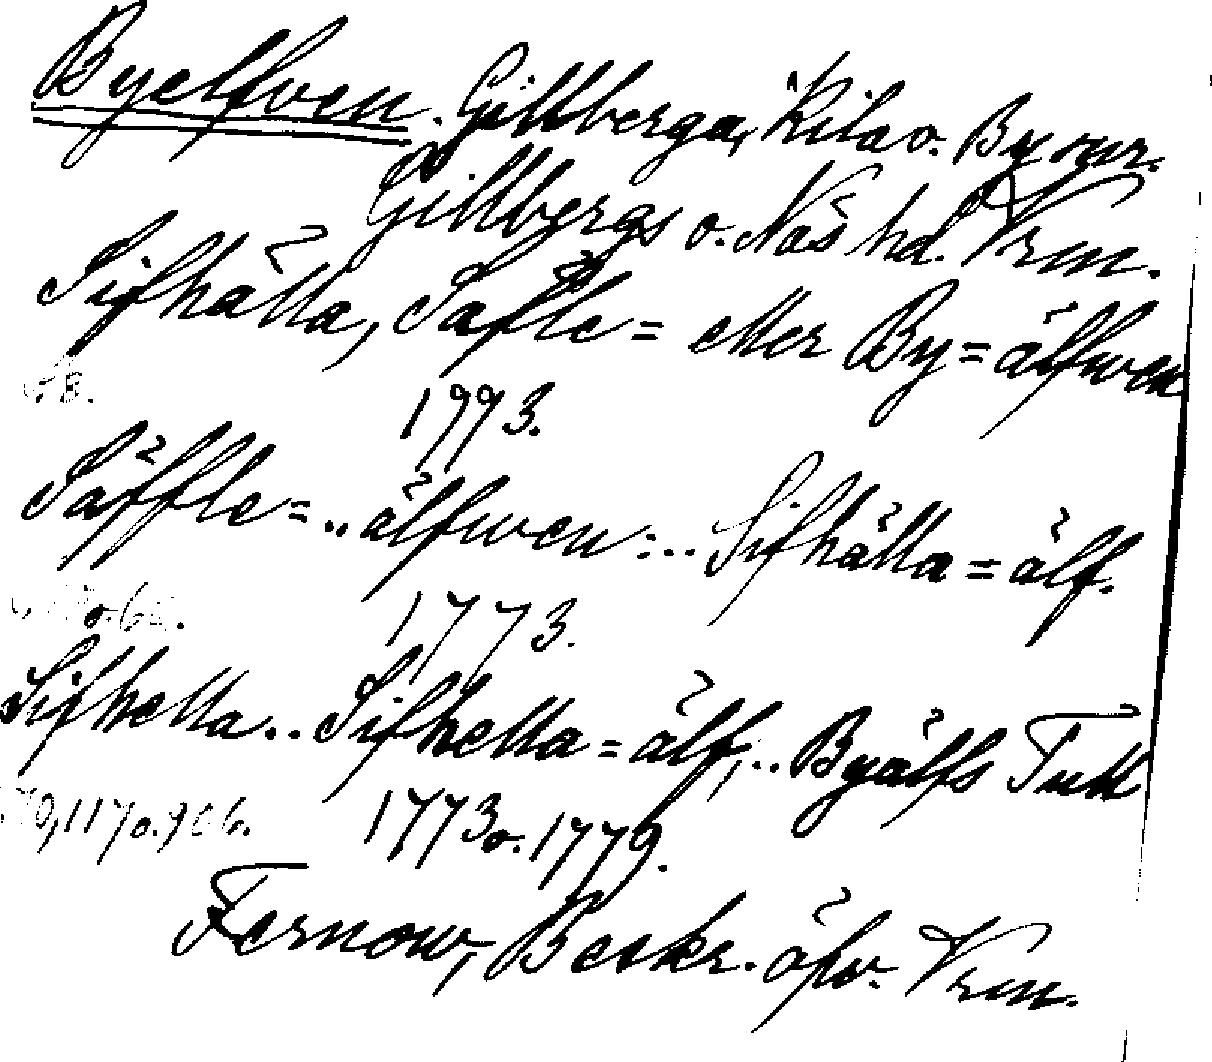 Byelfven. Gillberga, Kila o. By snr.
Gillbergs o. Näs hd. Vrm.
Sifhälla, Säfle= eller By=älfwen
1773.
Säffle=..älfwen:.. Sifhälla=älf.
1773.
Sifhella.. Sifhella=älf,.. Byälfs Tull
117 o. 906. 1773 o. 1779.
Fernow, Beskr. öfv. Vrm.